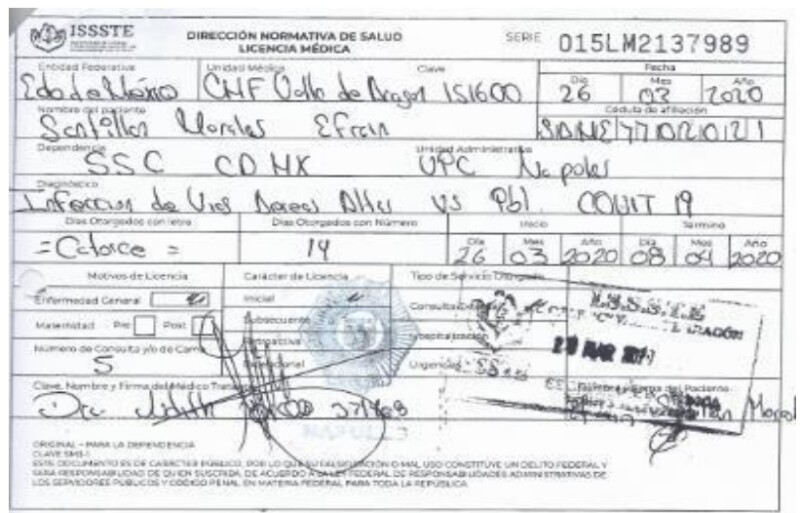 ISSSTE
DIRECCIÓN NORMATIVA DE SALUD
LICENCIA MÉDICA
SERIE 015LM2137989
Entidad Federativa Unidad Médica Clave Fecha
Edo de México CMF Valle de Aragon 151600 Día 26 Mes 03 Año 2020
Nombre del paciente Cédula de afiliación
Santillan Morales Efrain
Dependencia Unidad Administrativa
SSC CDMX UPC Napoles
Diagnóstico
Infeccion de Vias Aereas Altas VS Pbl. COVIT 19
Días Otorgados con letra Días Otorgados con Número Inicio Termino
= Catorce = 14 Día 26 Mes 03 Año 2020 Día 08 Mes 04 Año 2020
Motivos de Licencia Carácter de Licencia Tipo de Servicio Otorgado
Enfermedad General Inicial Consulta
Maternidad Pre Post Subsecuente Hospitalización
Número de Consulta y/o de Cama Retroactiva
5 Urgencias
Clave, Nombre y Firma del Médico Firma del Paciente
Dra. Judith
NAPOLES
ORIGINAL - PARA LA DEPENDENCIA
CLAVE SM3-1
ESTE DOCUMENTO ES DE CARÁCTER PÚBLICO, POR LO QUE SU FALSIFICACIÓN O MAL USO CONSTITUYE UN DELITO FEDERAL Y
SERÁ RESPONSABILIDAD DE QUIEN SUSCRIBA, DE ACUERDO A LA LEY FEDERAL DE RESPONSABILIDADES ADMINISTRATIVAS DE
LOS SERVIDORES PÚBLICOS Y CÓDIGO PENAL EN MATERIA FEDERAL PARA TODA LA REPÚBLICA.